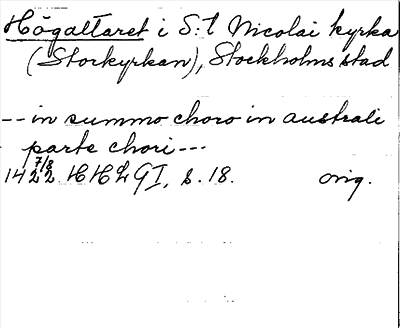 Högaltaret i S:t Nicolai kyrka
(Storkyrkan), Stockholms stad
-- in summo choro in australi
parte chori ---
1422 7/8 HHLGI, s. 18. orig.